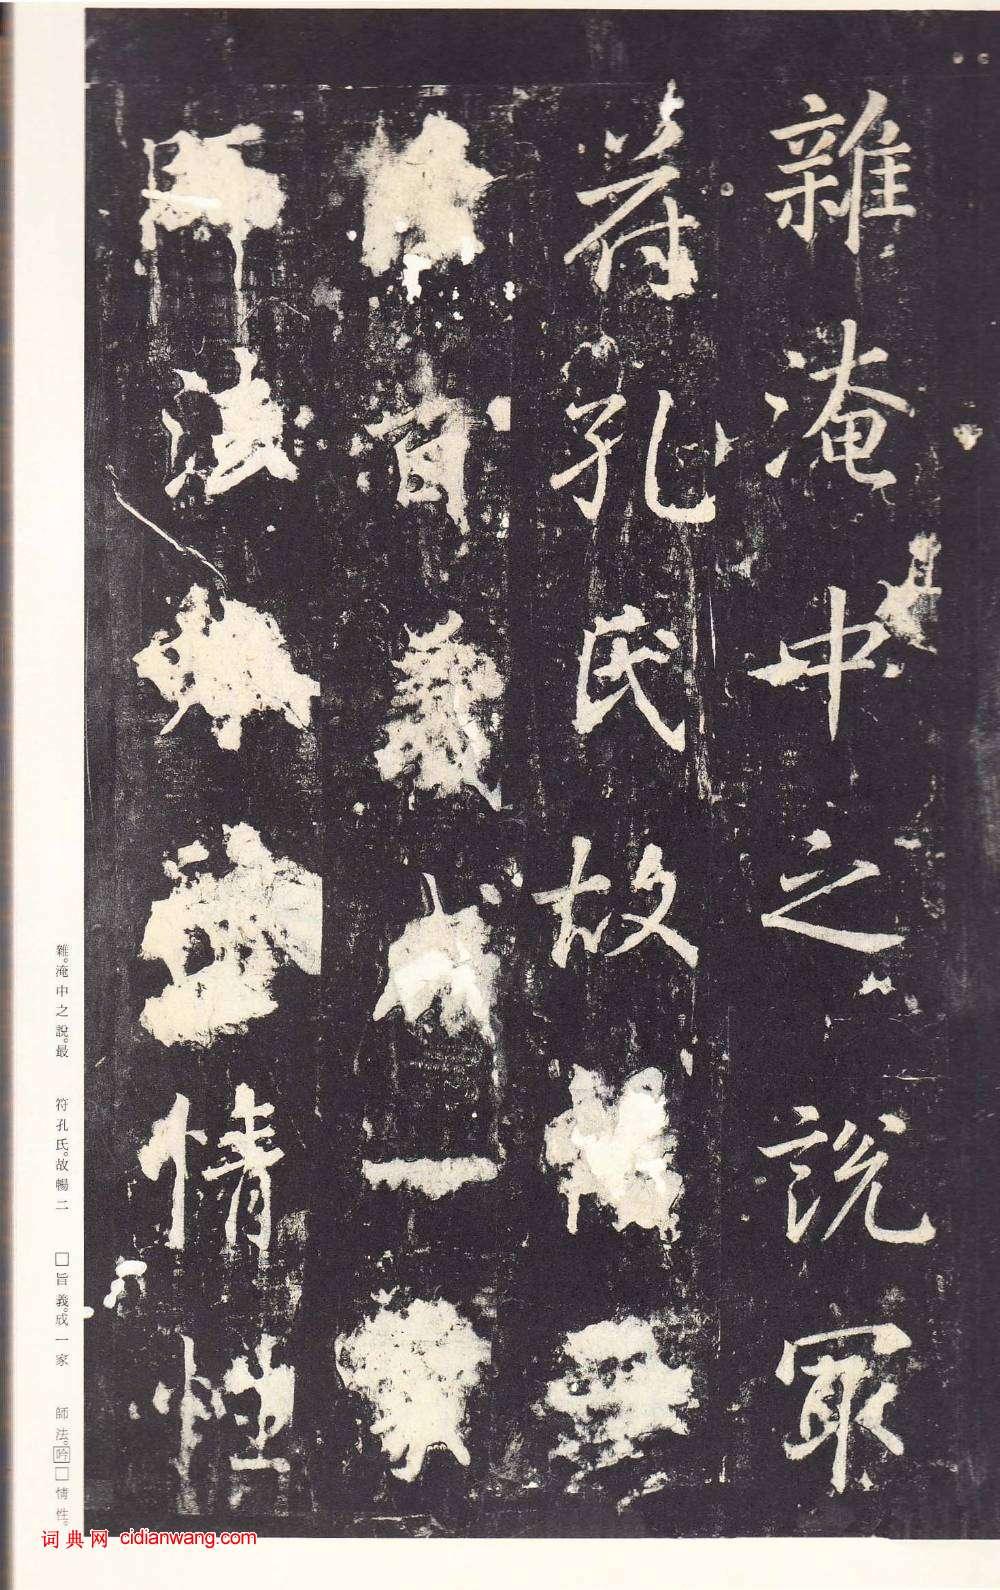 雜淹中之説冣
符孔氏故暢二
旨義成一家
師法情性
雜。淹中之說。最　符孔氏。故暢二　□旨義。成一家　師法。吟□情性。
词典网 cidianwang.com